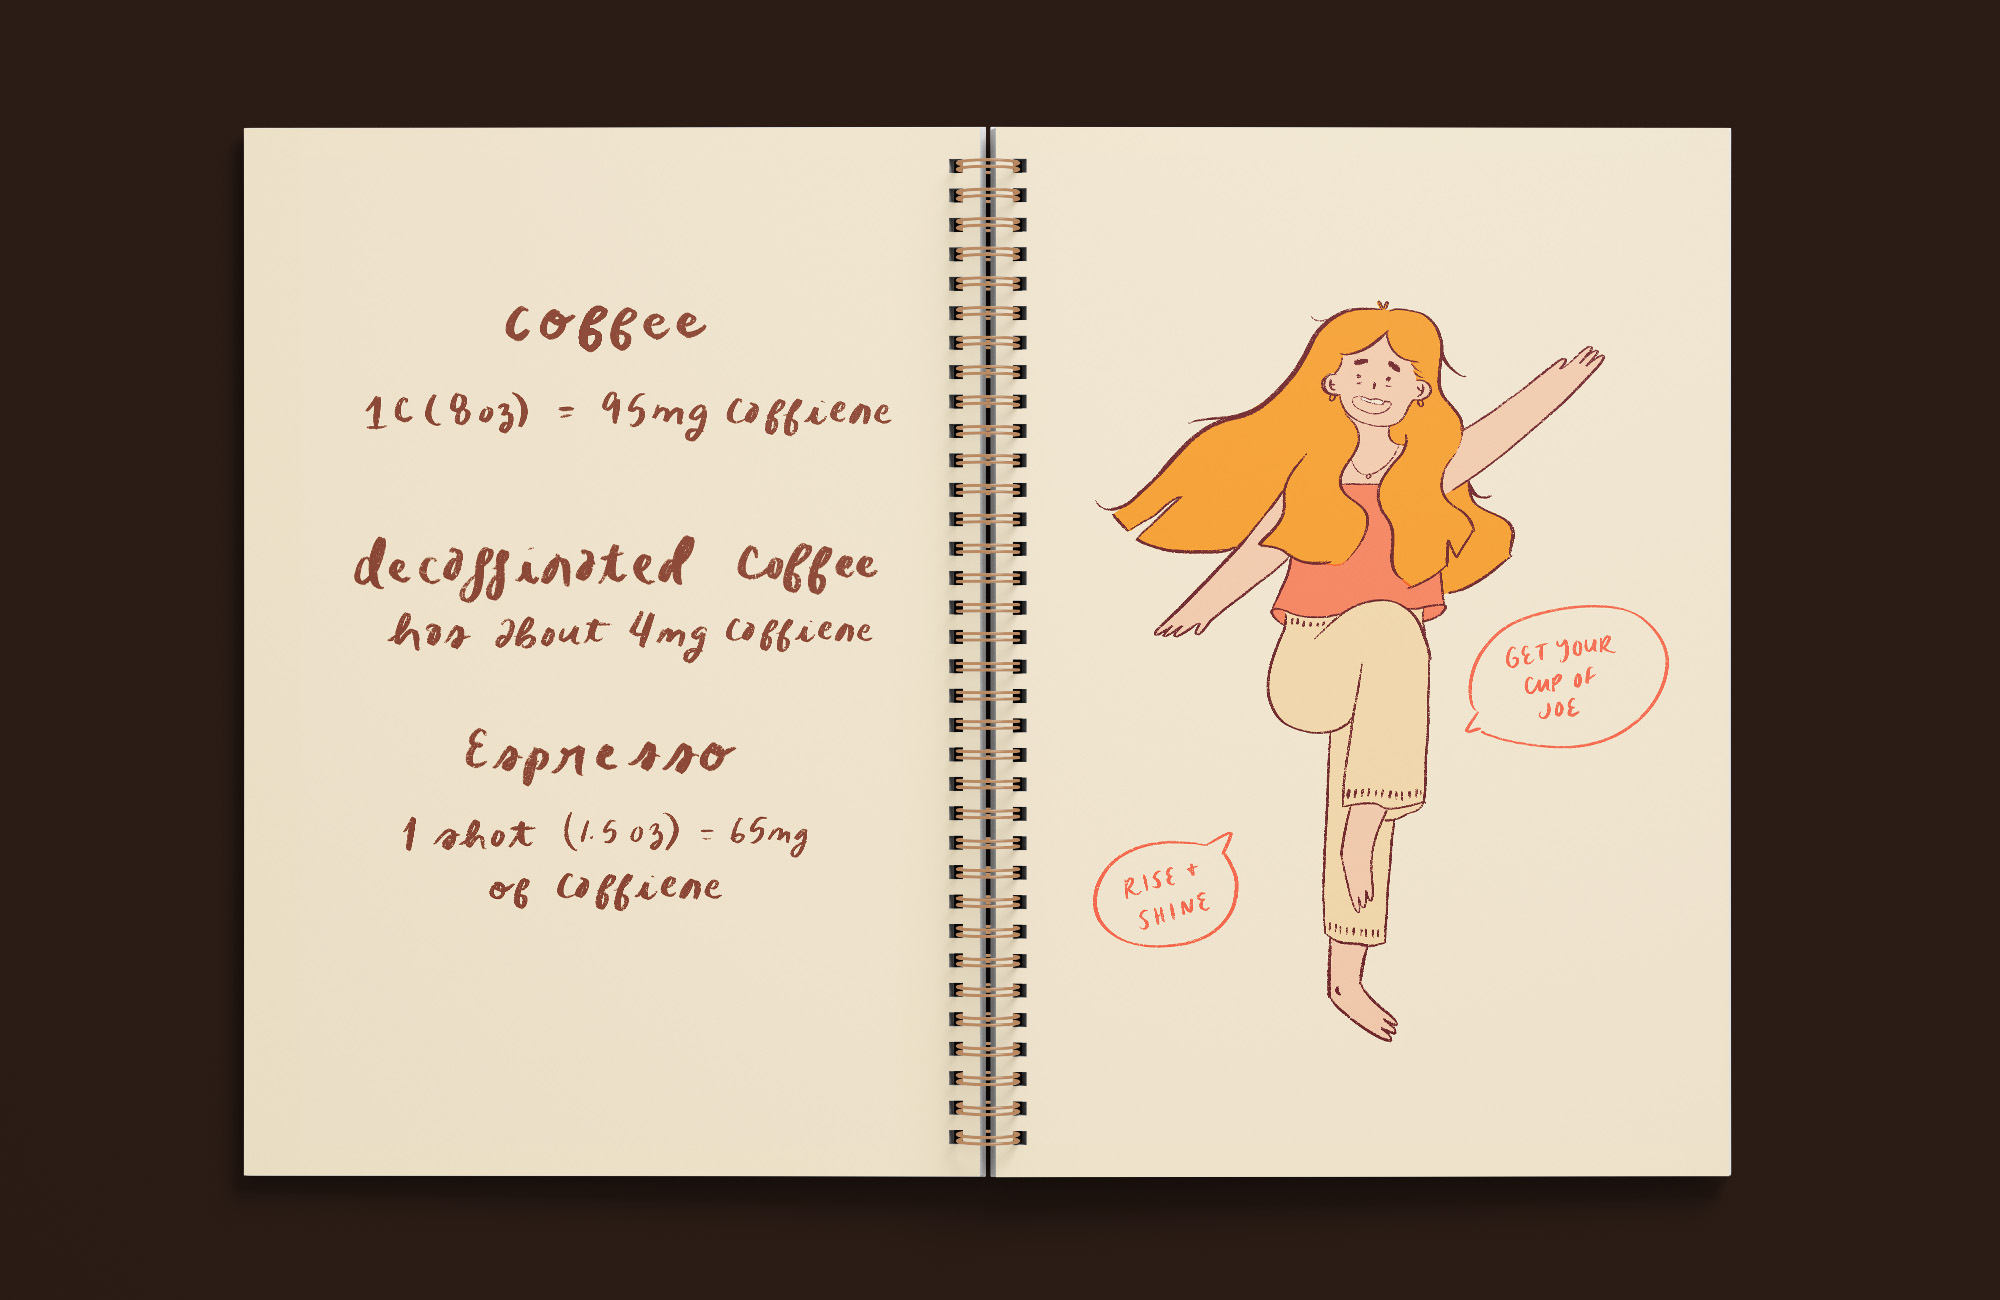 coffee
1C (8oz) = 95mg caffiene
decaffinated coffee
has about 4mg caffiene
Espresso
1 shot (1.5 oz) = 65mg
of caffiene
GET YOUR
CUP OF
JOE
RISE +
SHINE